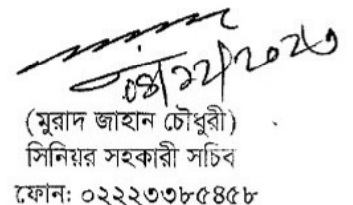 ০৪/১২/২০২৩
(মুরাদ জাহান চৌধুরী)
সিনিয়র সহকারী সচিব
ফোন: ০২২২৩৩৮৫৪৫৮